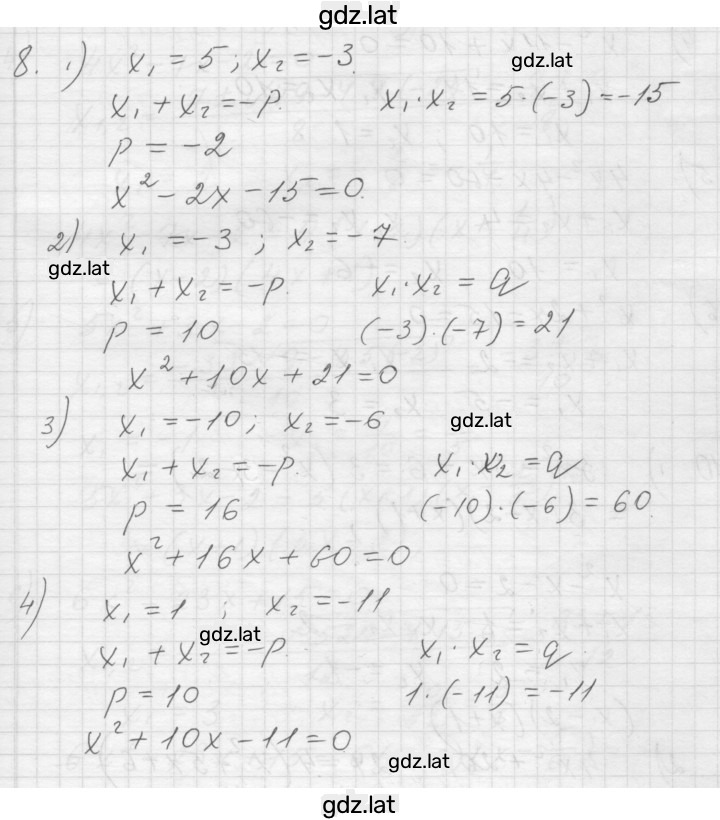 gdz.lat
8. 1) x₁ = 5; x₂ = -3.
gdz.lat
x₁ + x₂ = -p. x₁·x₂ = 5·(-3) = -15
p = -2
x² - 2x - 15 = 0.
2) x₁ = -3 ; x₂ = -7.
gdz.lat
x₁ + x₂ = -p. x₁·x₂ = q
p = 10 (-3)·(-7) = 21
x² + 10x + 21 = 0
3) x₁ = -10; x₂ = -6
gdz.lat
x₁ + x₂ = -p. x₁·x₂ = q
p = 16 (-10)·(-6) = 60.
x² + 16x + 60 = 0
4) x₁ = 1 ; x₂ = -11
gdz.lat
x₁ + x₂ = -p. x₁·x₂ = q
p = 10 1·(-11) = -11
x² + 10x - 11 = 0
gdz.lat
gdz.lat